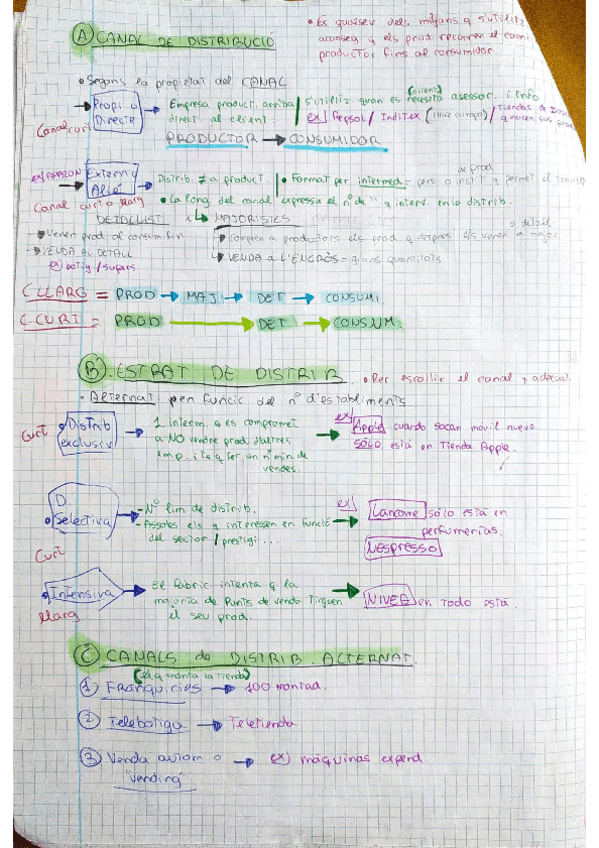 A CANAL DE DISTRIBUCIÓ
• És qualsev dels mitjans q s'utilitz
aconseg q els prod recorren el camí
productor fins al consumidor.
• Segons la propietat del CANAL
Propi o Directe → Empresa product. arriba direct. al client
s'utilitz quan es necesita asessor. i info
(client)
ex/ Repsol / Inditex
/ tiendas de
Canal curt
PRODUCTOR → CONSUMIDOR
ex/ AMAZON
Extern o Aliè → Distrib. ≠ a product.
• Format per intermed =
Canal curt o llarg
• La long. del canal expressa el nº de " q interv. en la distrib.
DETALLIST
MAJORISTES
Venen prod al consum fin
compren a productors els prod q després els venen a
VENDA AL DETALL
VENDA a L'ENGRÒS = grans quantitats
ex) botig / supers
C LLARG = PROD → MAJ → DET → CONSUMI
C CURT = PROD → DET → CONSUMI
B ESTRAT DE DISTRIB
• Per escollir el canal + adequat.
• Alternat. pen funcic del nº d'establiments
Curt
• Distrib exclusiv → 1 interm. q es compromet
a NO vendre prod d'altres
emp. i a fer un nº mín de
vendes.
ex/ Apple cuando sacan móvil nuevo
SÓLO está en Tienda Apple.
D. Selectiva
- Nº lim de distrib.
- Assoleix els q interessen en funció
del sector / prestigi...
ex/ Lancome sólo está en
perfumerías.
NESPRESSO
Curt
• Intensiva → El fabric intenta q la
majoria de Punts de venda tinguen
el seu prod.
NIVEA en todo está.
llarg
C CANALS de DISTRIB. ALTERNAT.
(el q monta la tienda)
1 Franquícies → 100 montad.
2 Telebotiga → Teletienda
3 Venda autom o → ex) máquinas expend
"vending"